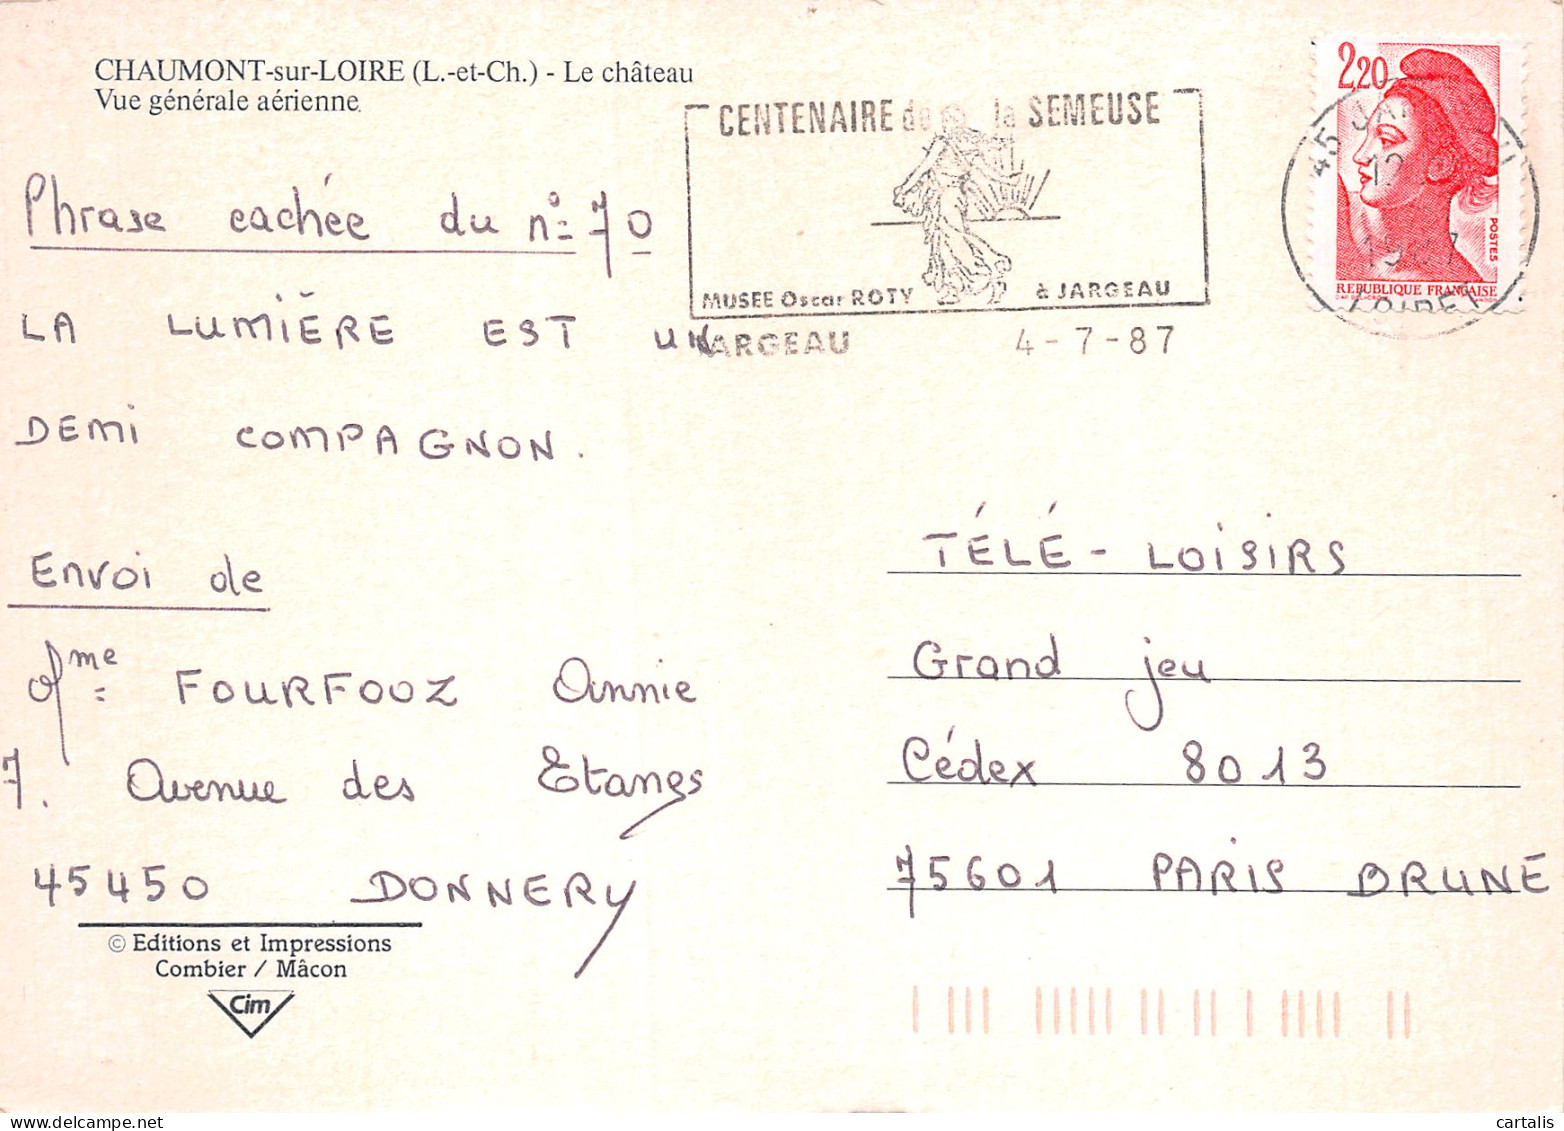 CHAUMONT-sur-LOIRE (L.-et-Ch.) - Le château
Vue générale aérienne.
CENTENAIRE de la SEMEUSE
MUSEE Oscar ROTY à JARGEAU
JARGEAU 4-7-87
2,20
POSTES
REPUBLIQUE FRANÇAISE
45
LOIRET
Phrase cachée du n° 70
LA LUMIÈRE EST UN
DEMI COMPAGNON.
Envoi de
Mme FOURFOOZ Annie
7. Avenue des Etangs
45450 DONNERY
TÉLÉ-LOISIRS
Grand jeu
Cédex 8013
75601 PARIS BRUNE
© Editions et Impressions
Combier / Mâcon
Cim
cartalis